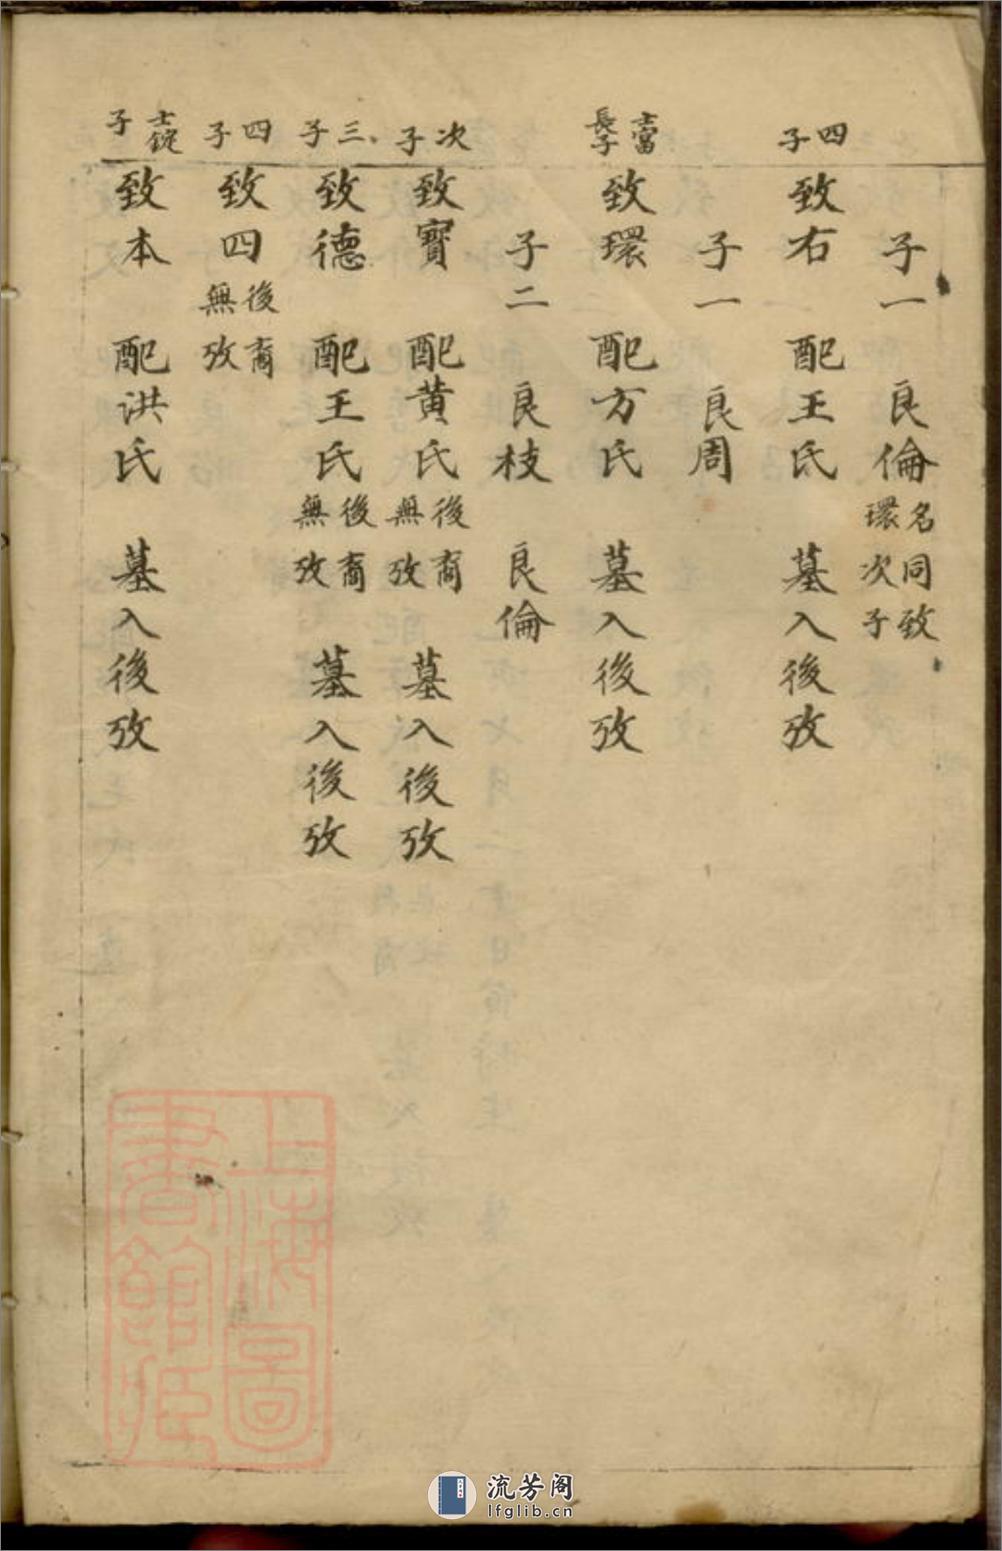 子一 良倫 名同致環次子
四子
致右 配王氏 墓入後攷
子一 良周
士富長子
致環 配方氏 墓入後攷
子二 良枝 良倫
次子
致寶 配黄氏 後裔無攷 墓入後攷
三子
致德 配王氏 後裔無攷 墓入後攷
四子
致四 後裔無攷
士錠子
致本 配洪氏 墓入後攷
上海圖書館藏
流芳阁
lfglib.cn